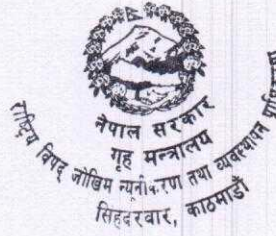 नेपाल सरकार
गृह मन्त्रालय
राष्ट्रिय विपद् जोखिम न्यूनीकरण तथा व्यवस्थापन प्राधिकरण
सिंहदरवार, काठमाडौं